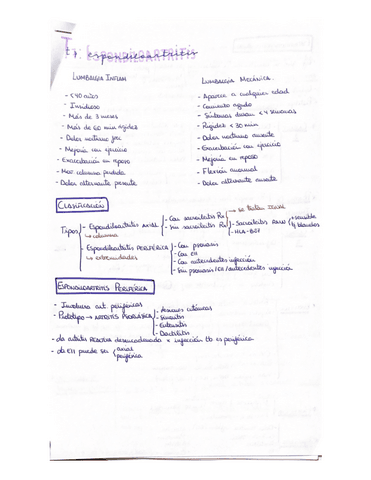 T7: ESPONDILOARTRITIS
LUMBALGIA INFLAM
- <40 años
- Insidioso
- Más de 3 meses
- Más de 60 min rigidez
- Dolor nocturno
- Mejoría con ejercicio
- Exacerbación en reposo
- columna perdida
- Dolor alternante presente
LUMBALGIA MECÁNICA
- Aparece a cualquier edad
- Comienzo agudo
- Síntomas duran <4 semanas
- Rigidez <30 min
- Dolor nocturno ausente
- Exacerbación con ejercicio
- Mejoría en reposo
- Flexión normal
- Dolor alternante ausente
CLASIFICACIÓN
→ se tratan IGUAL
Tipos
- Espondiloartritis AXIAL
↳ columna
- Con sacroileitis Rx
- Sin sacroileitis Rx
- Sacroileitis
- HLA-B27
- Espondiloartritis PERIFÉRICA
↳ extremidades
- Con psoriasis
- Con EII
- Con antecedentes infección
- Sin psoriasis/EII/antecedentes infección
ESPONDILOARTRITIS PERIFÉRICA
- Involucra art. periféricas
- Prototipo → ARTRITIS PSORIÁSICA
- Lesiones cutáneas
- Sinovitis
- Entesitis
- Dactilitis
- La artritis REACTIVA desencadenada x infección es periférica
- La EII puede ser
axial
periférica